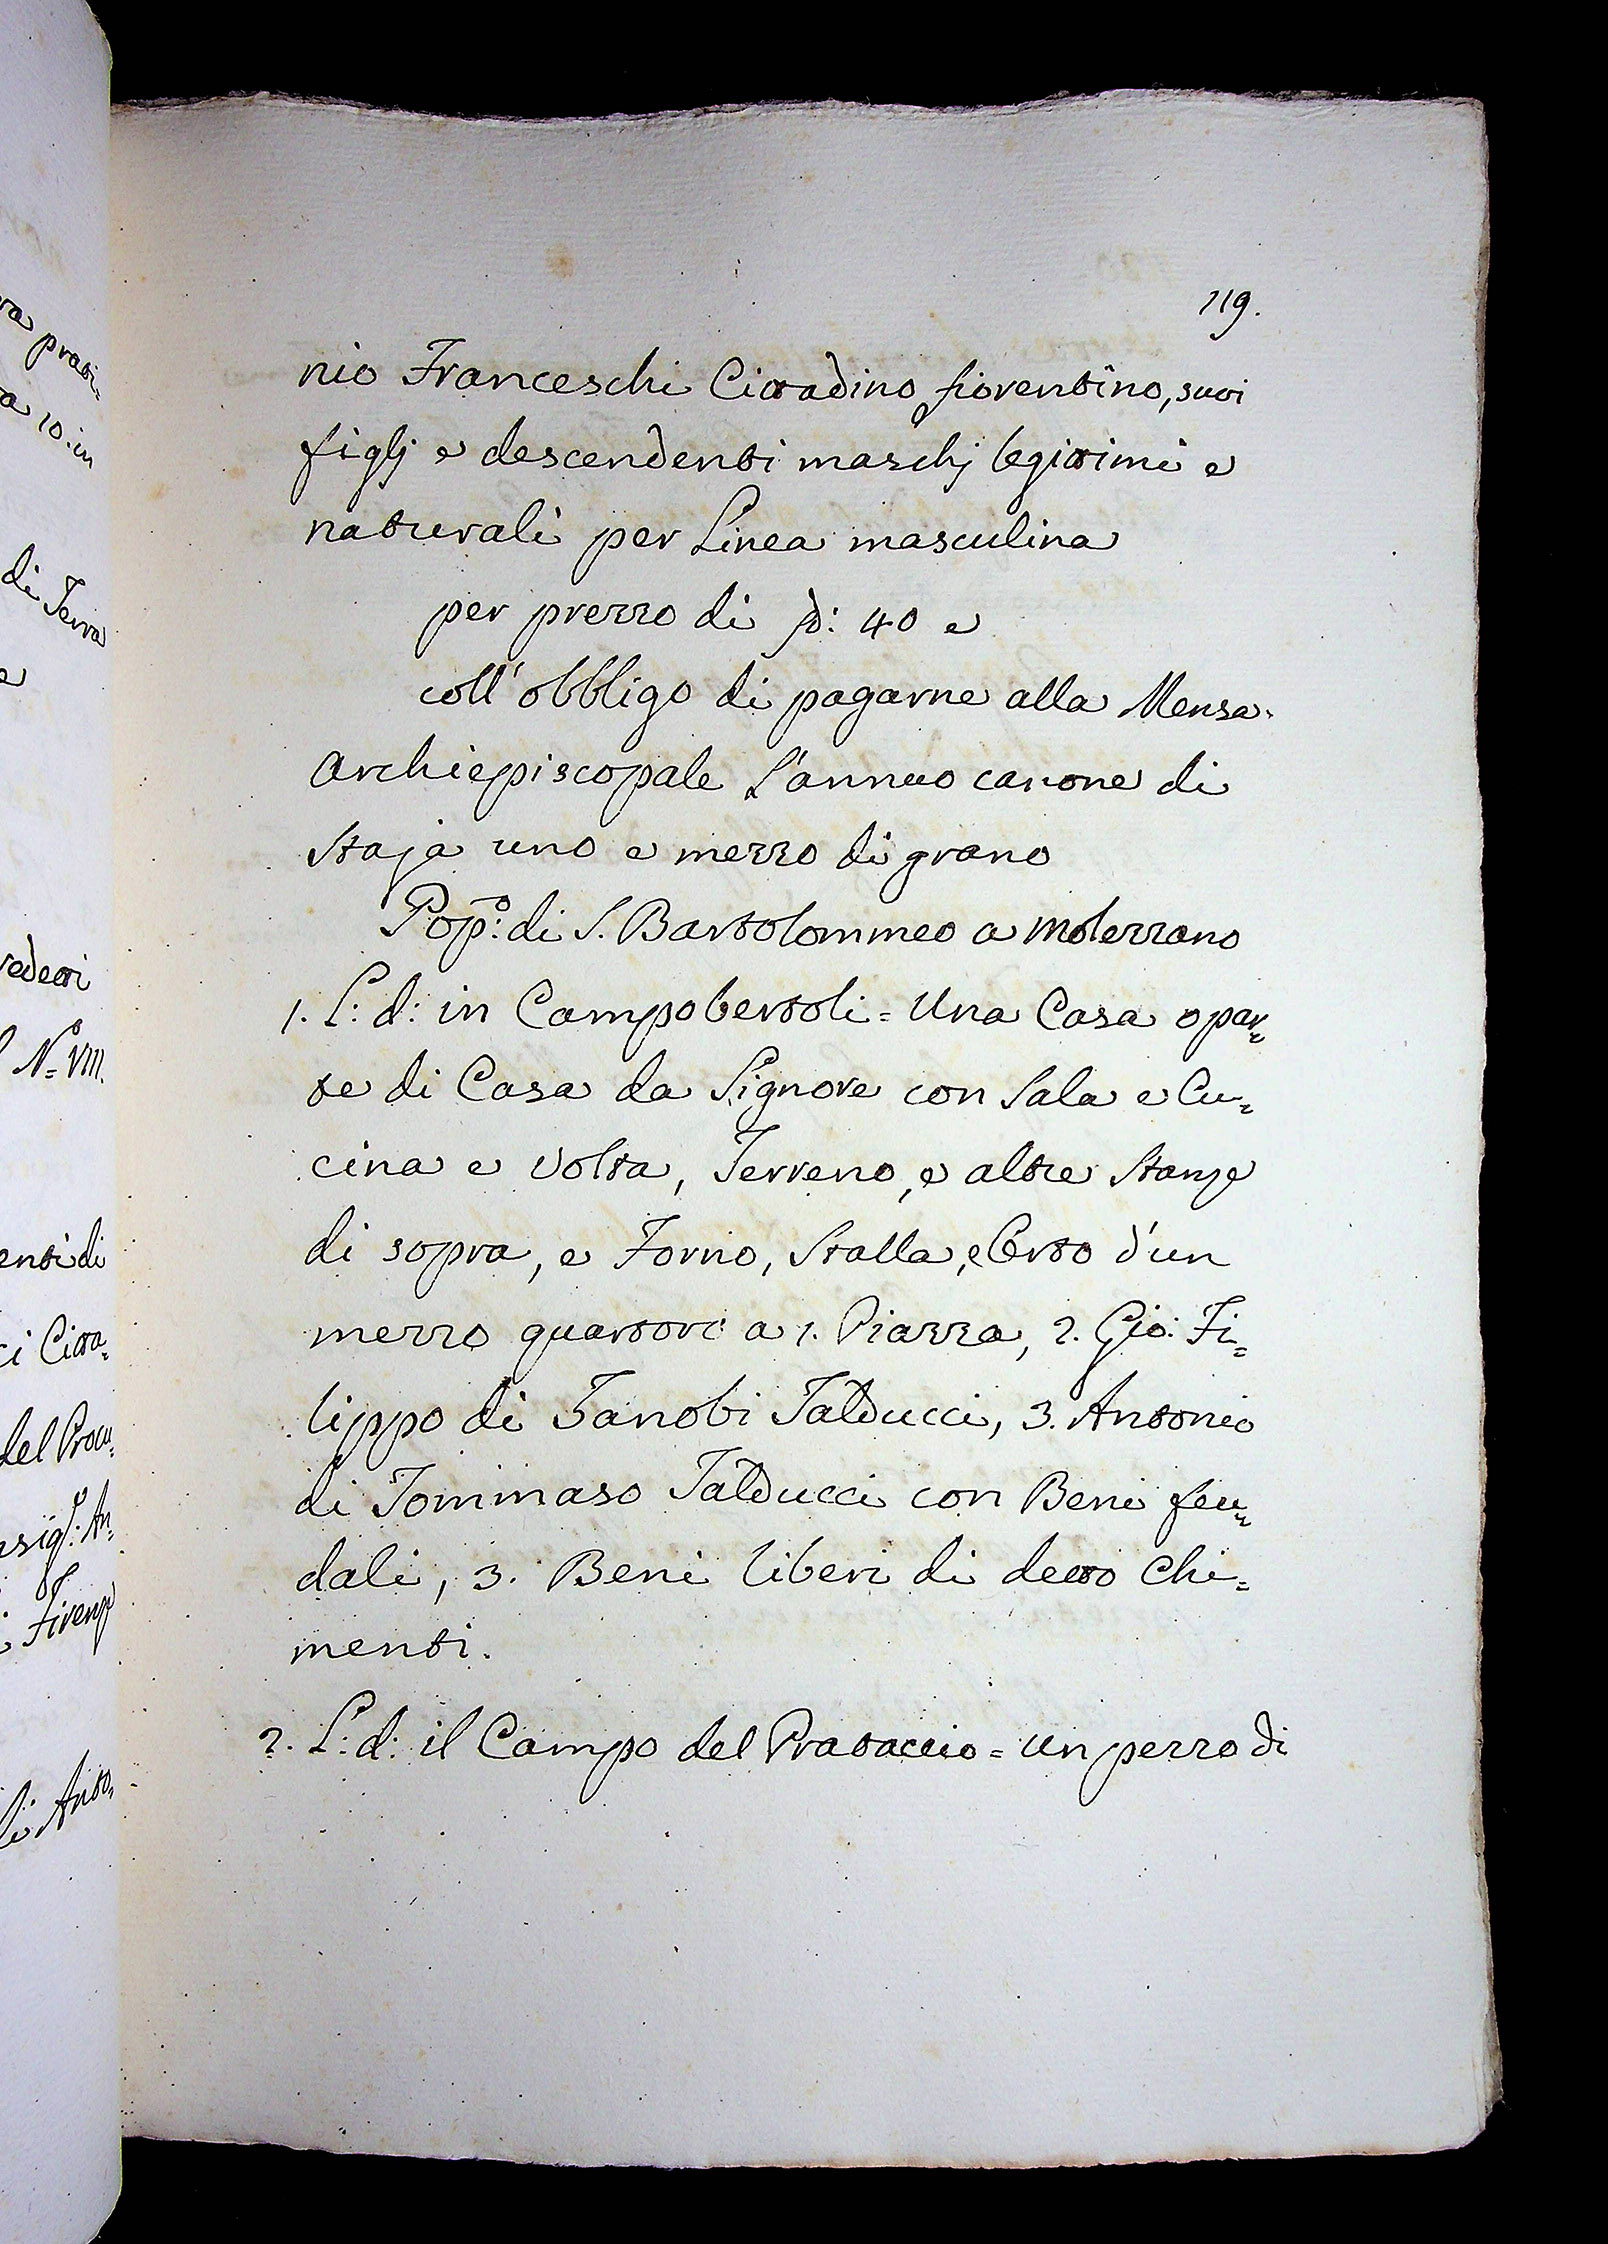 119.
nio Franceschi Cittadino fiorentino, suoi
figlj e descendenti maschj legittimi e
naturali per Linea masculina
per prezzo di fd: 40 e
coll'obbligo di pagarne alla Mensa
Archiepiscopale l'annuo canone di
Staja uno e mezzo di grano
Pop:o di S. Bartolommeo a Molezzano
1. L: d: in Campobertoli = Una Casa o par=
te di Casa da Signore con Sala e Cu=
cina e Volta, Terreno, e altre Stanze
di sopra, e Forno, Stalla, e Orto d'un
mezzo quartoro a 1. Piazza, 2. Gio: Fi=
lippo di Zanobi Talducci, 3. Antonio
di Tommaso Talducci con Beni feu=
dali, 3. Beni liberi di detto Chi=
menti.
2. L: d: il Campo del Prataccio = un pezzo di
prati=
a 10. in
di Terra
e
N= VIII.
enti di
i Citta=
del Procu=
An=
Firenze
Anto=